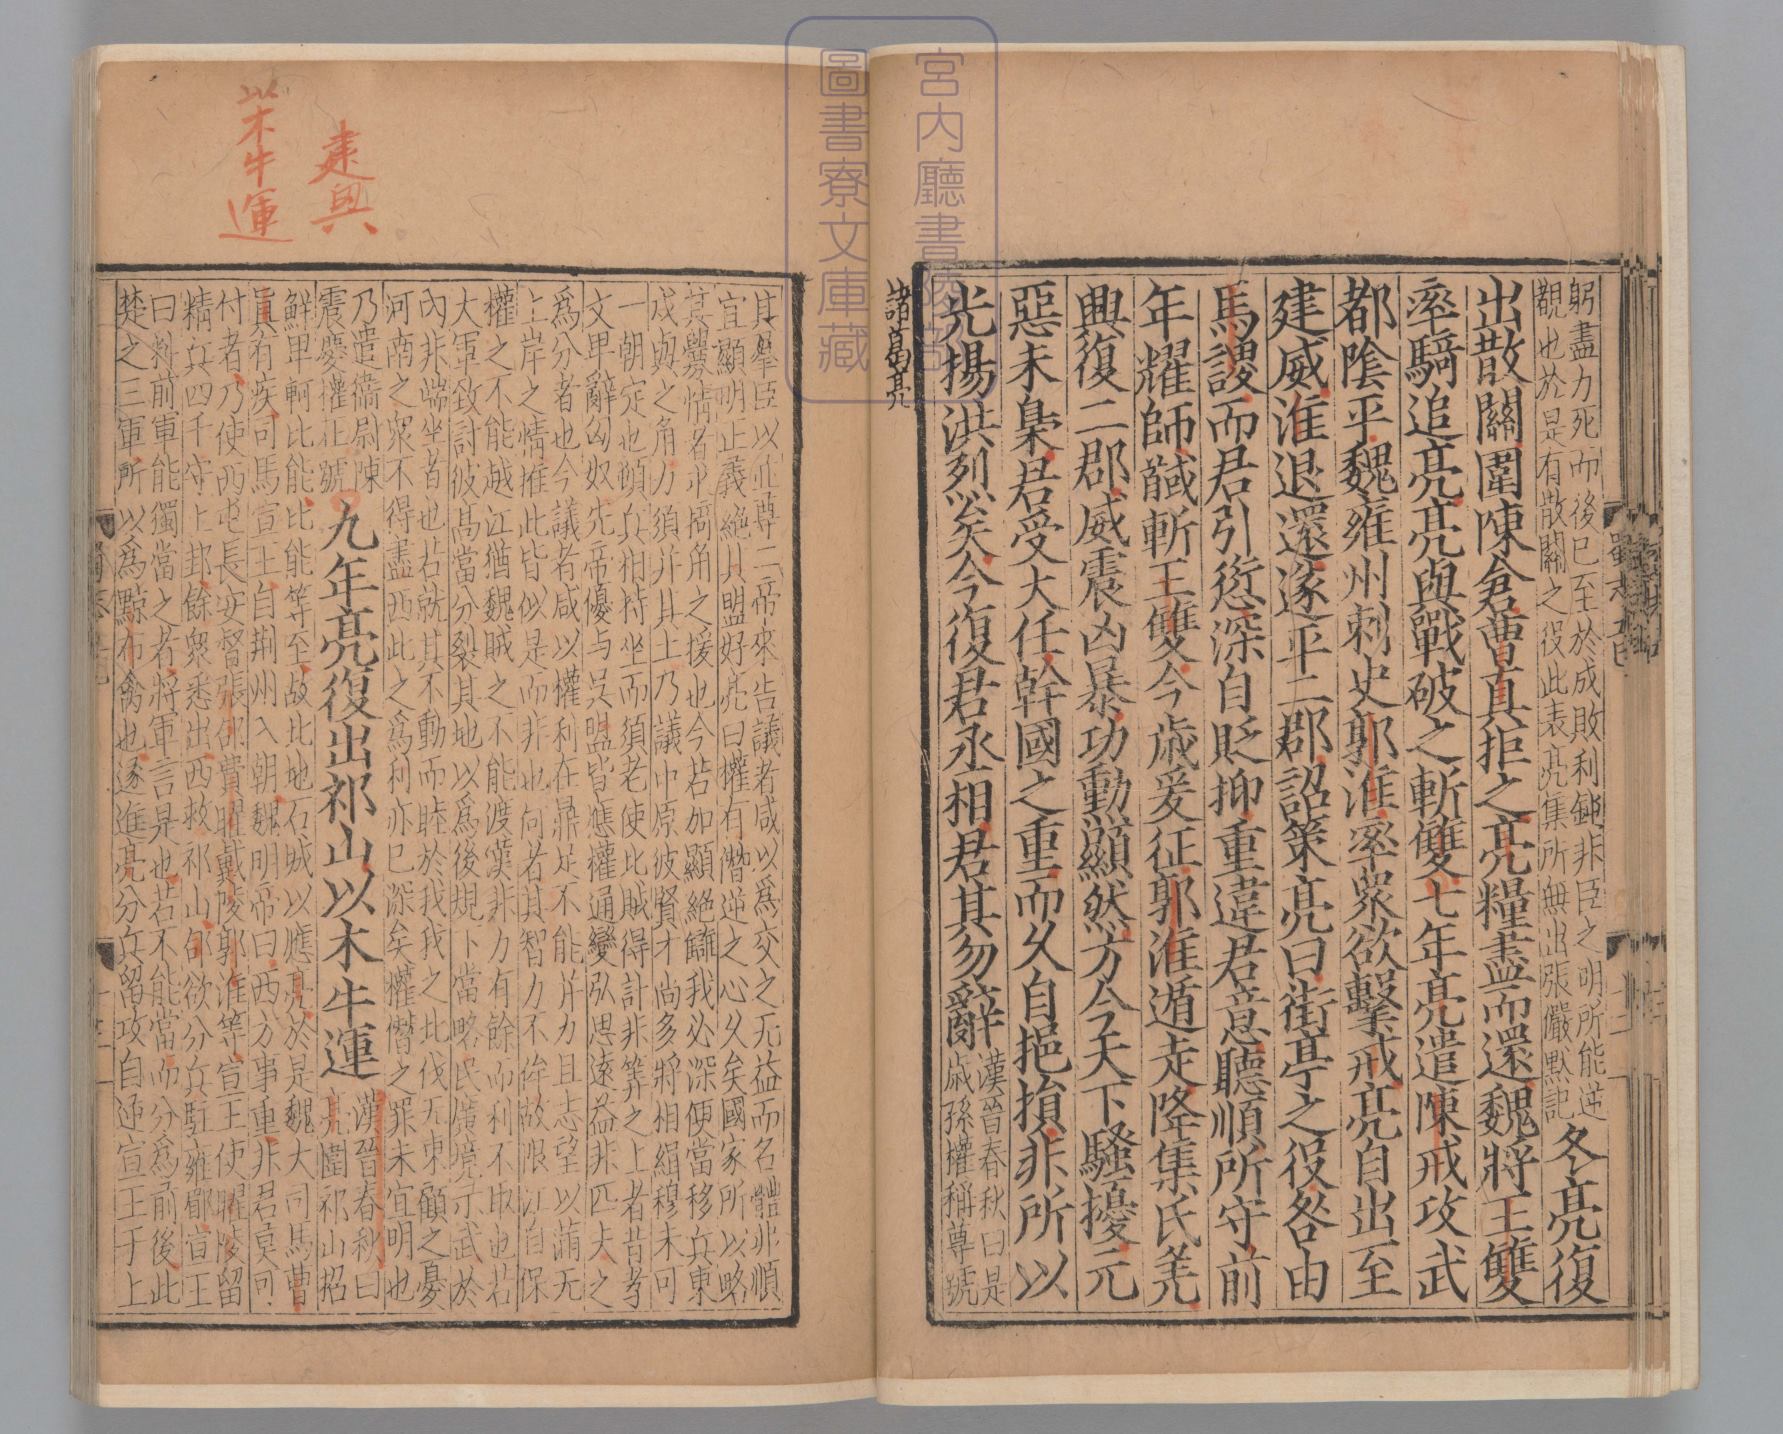 躬盡力死而後已至於成敗利鈍非臣之明所能逆
覩也於是有散關之役此表亮集所無出張儼默記
冬亮復
出散關圍陳倉曹真拒之亮糧盡而還魏將王雙
率騎追亮亮與戰破之斬雙七年亮遣陳戒攻武
都陰平魏雍州刺史郭淮率眾欲擊戒亮自出至
建威淮退還遂平二郡詔策亮曰街亭之役咎由
馬謖而君引愆深自貶抑重違君意聽順所守前
年耀師馘斬王雙今歲爰征郭淮遁走降集氐羌
興復二郡威震凶暴功勳顯然方今天下騷擾元
惡未梟君受大任幹國之重而久自挹損非所以
光揚洪烈矣今復君丞相君其勿辭
漢晉春秋曰是
歲孫權稱尊號
諸葛亮
其羣臣以並尊二帝來告議者咸以為交之无益而名體非順
宜顯明正義絕其盟好亮曰權有僭逆之心久矣國家所以略
其釁情者求掎角之援也今若加顯絕讎我必深便當移兵東
戍與之角力須并其土乃議中原彼賢才尚多將相緝穆未可
一朝定也頓兵相持坐而須老使北賊得計非筭之上者昔孝
文卑辭匈奴先帝優与吳盟皆應權通變弘思遠益非匹夫之
為分者也今議者咸以權利在鼎足不能并力且志望以滿无
上岸之情推此皆似是而非也何者其智力不侔故限江自保
權之不能越江猶魏賊之不能渡漢非力有餘而利不取也若
大軍致討彼髙當分裂其地以為後規下當略民廣境示武於
內非端坐者也若就其不動而睦於我我之北伐无東顧之憂
河南之眾不得盡西此之為利亦已深矣權僭之罪未宜明也
乃遣衛尉陳
震慶權正號
九年亮復出祁山以木牛運
漢晉春秋曰
亮圍祁山招
鮮卑軻比能比能等至故北地石城以應亮於是魏大司馬曹
真有疾司馬宣王自荆州入朝魏明帝曰西方事重非君莫可
付者乃使西屯長安督張郃費曜戴陵郭淮等宣王使曜陵留
精兵四千守上邽餘眾悉出西救祁山郃欲分兵駐雍郿宣王
曰料前軍能獨當之者將軍言是也若不能當而分為前後此
楚之三軍所以為黥布禽也遂進亮分兵留攻自逆宣王于上
建興
以木牛運
宮內廳書陵部
圖書寮文庫藏